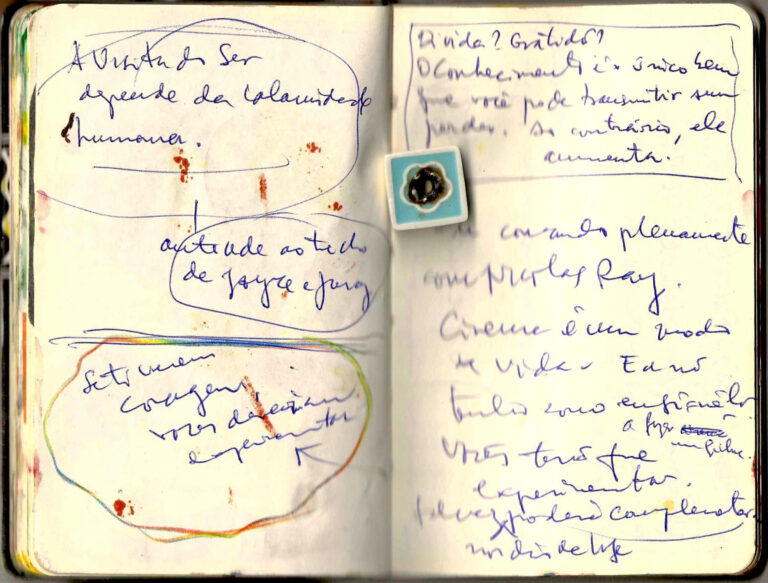 A Visita do Ser
depende da calamidade
humana.
de Joyce e Jung
Se tiverem
coragem,
vozes deveriam
experimentar
Dívida? Gratidão?
O Conhecimento é o único bem
que você pode transmitir sem
perdas. Ao contrário, ele
aumenta.
concordo plenamente
com Nicolas Ray.
Cinema é um modo
de vida. Eu não
tenho como ensiná-los
a fazer
um filme.
Vocês terão que
experimentar.
poderá complementar
nos dias de hoje